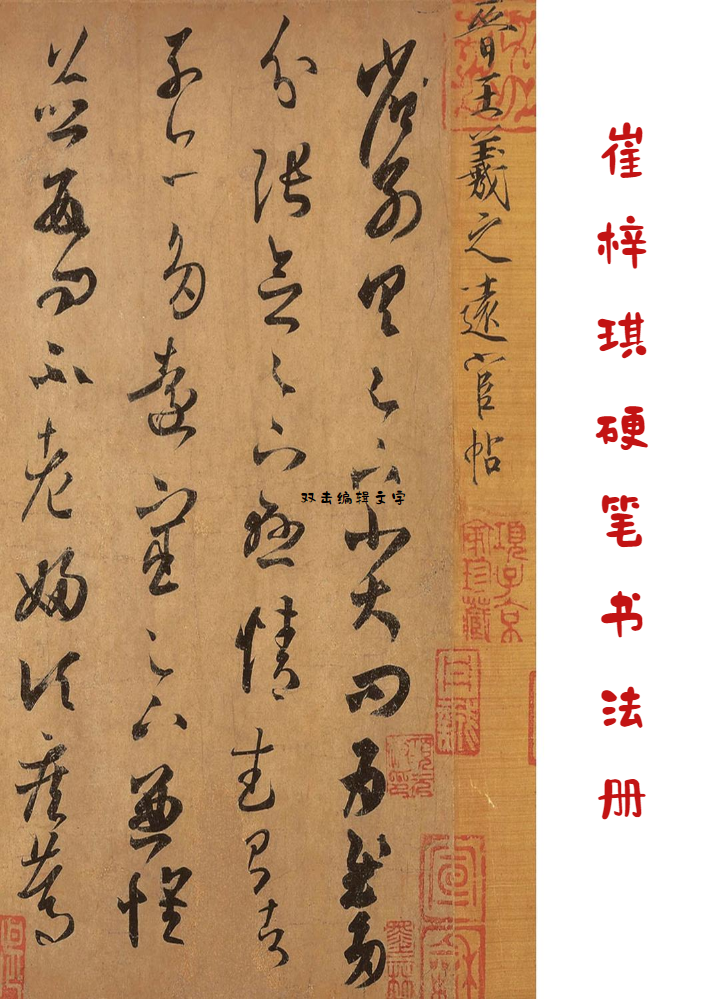 崔梓琪硬笔书法册
晉王羲之遠宦帖
省別具足下小大問為慰多
分張念足下懸情武昌諸
子亦多遠宦足下兼懷
並數問不老婦頃疾篤
双击编辑文字
項子京家珍藏